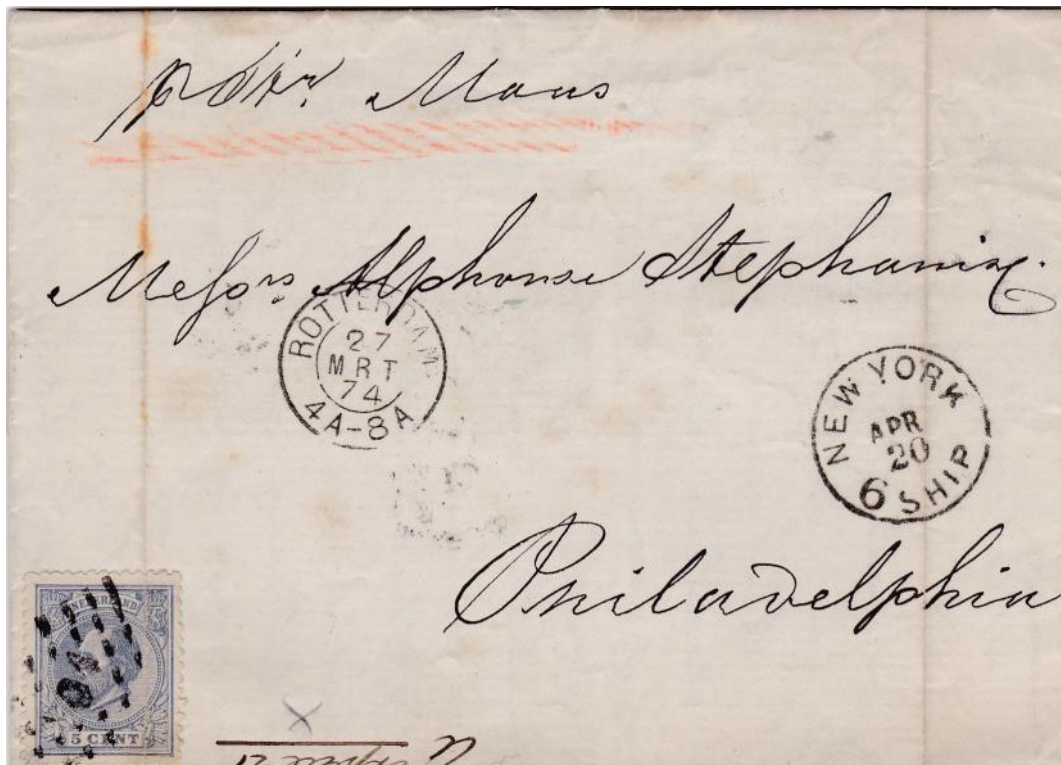 p Str. Maas
Messrs Alphonse Stephani &c.
ROTTERDAM
27
MRT
74
4A-8A
NEW YORK
APR
20
6 SHIP
Philadelphia
NEDERLAND
5 CENT